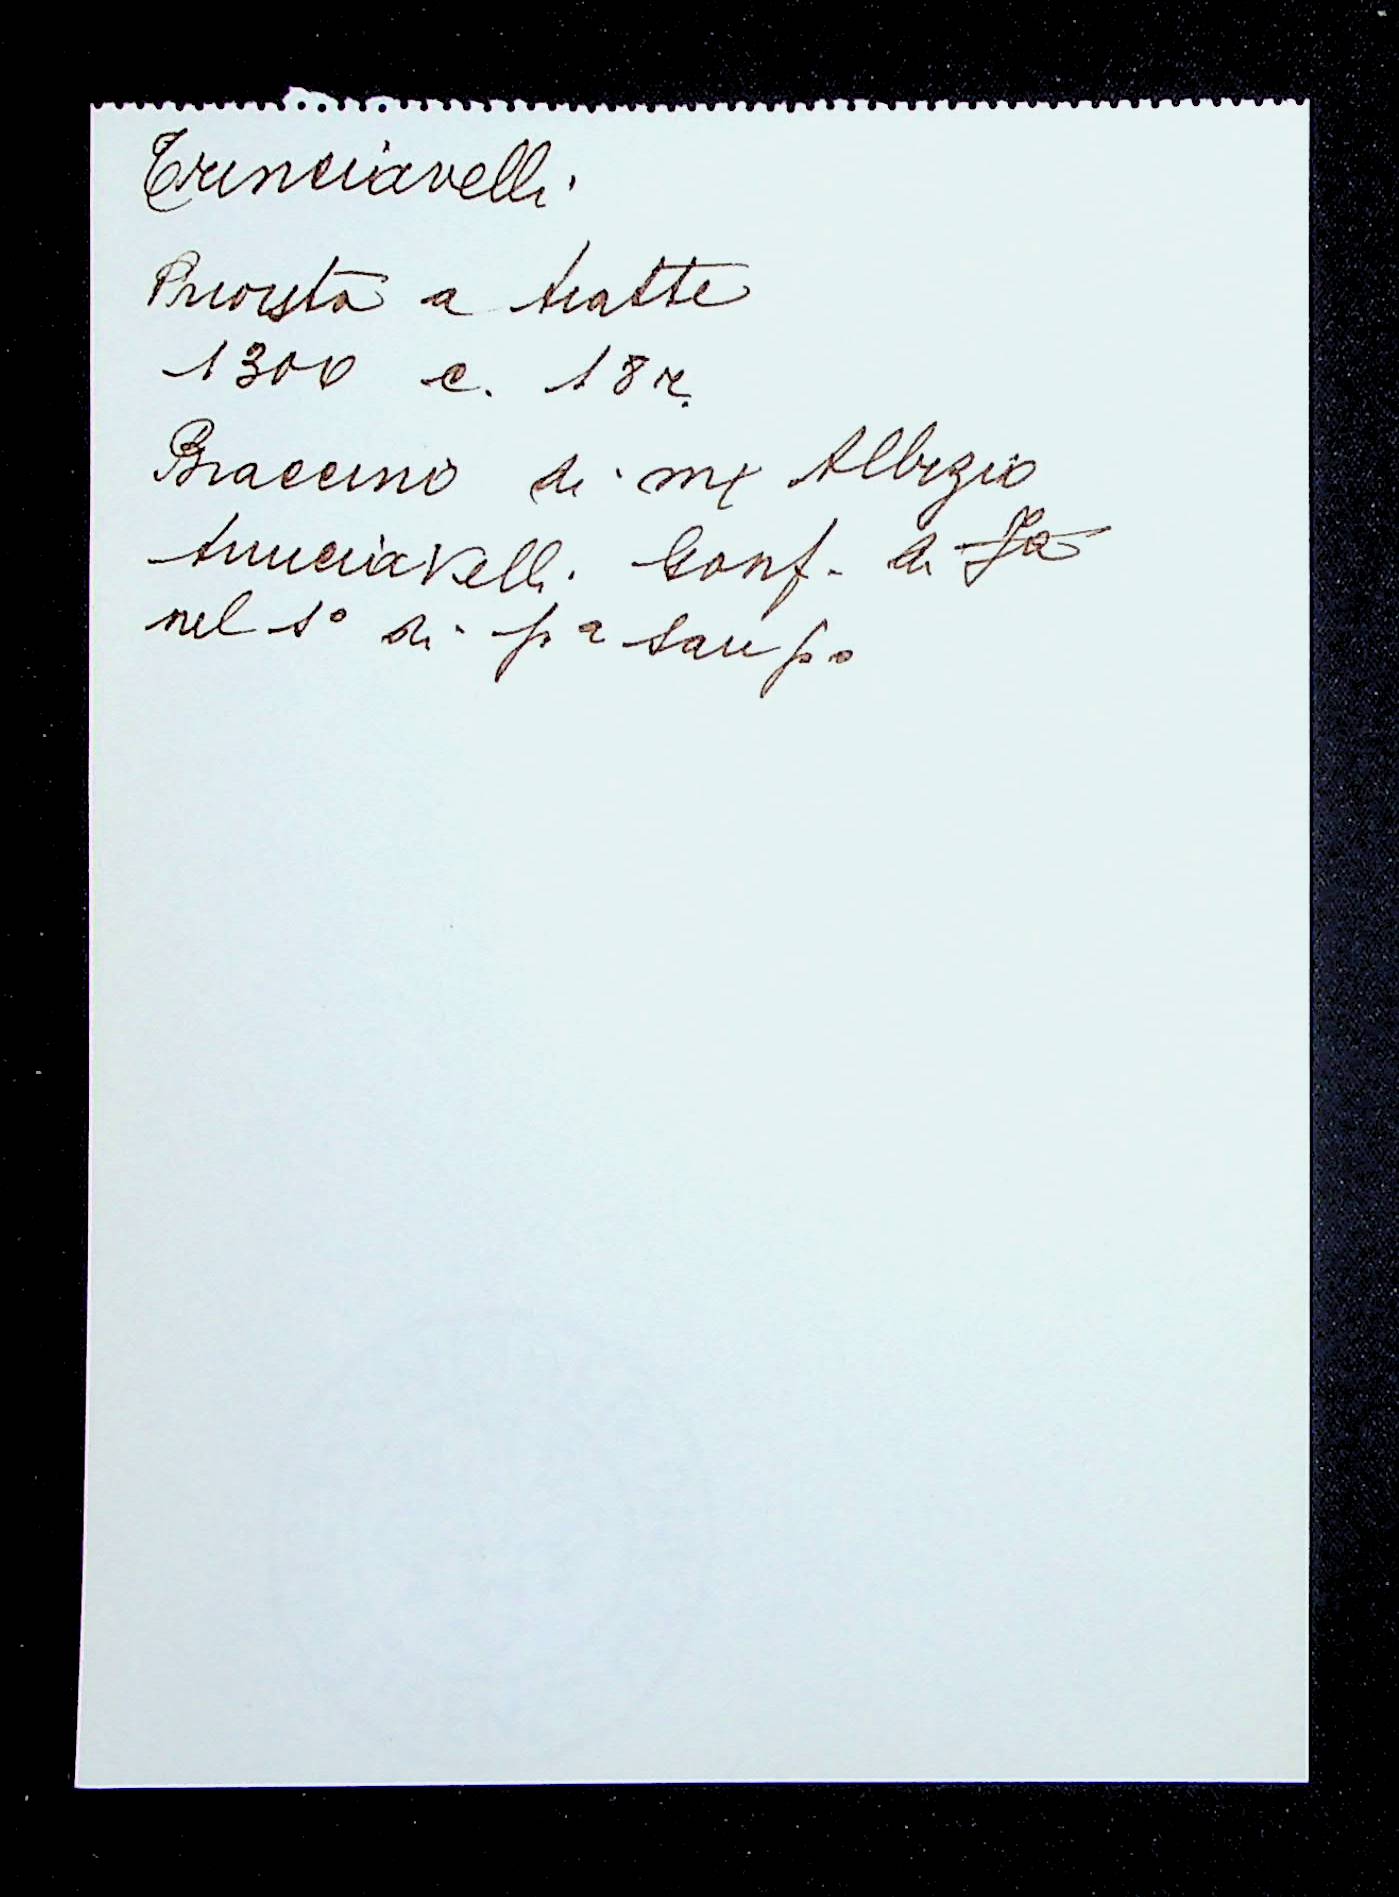 Trinciavelli
Priorista a tratte
1300 c. 18 r.
Braccino di mx Albizio
trinciavelli Gonf. di Ja
nel 1° di pa san po